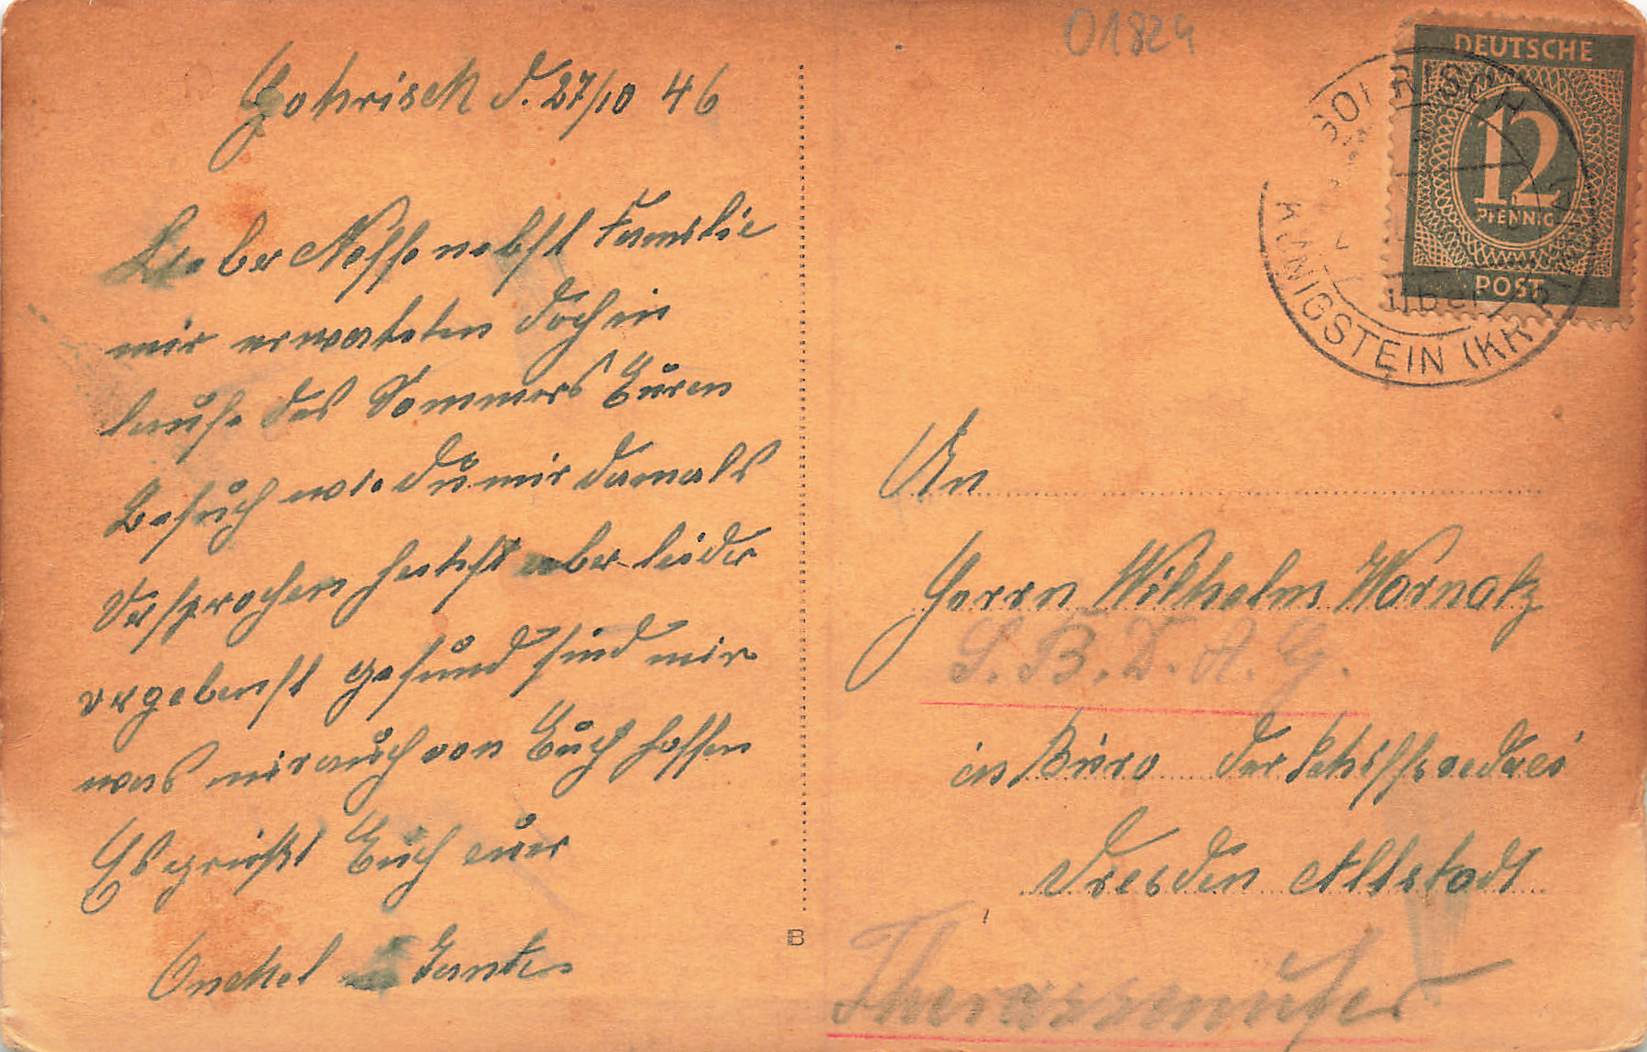 01824
Gohrisch d. 27/10 46
Lieber Neffe nebst Familie
wir erwarteten doch im
laufe des Sommers Euren
Besuch wie du mir damals
Versprochen hattest aber leider
vergebenst gesund sind wir
was wir auch von Euch hoffen
Es grüßt Euch euer
Onckel u Tante
B
DEUTSCHE
12
PFENNIG
POST
über
KÖNIGSTEIN (KR
An
Herrn Wilhelm Wornatz
S.B.D.A.G.
im Büro der Schiffsrederei
Dresden Altstadt
Therassenufer